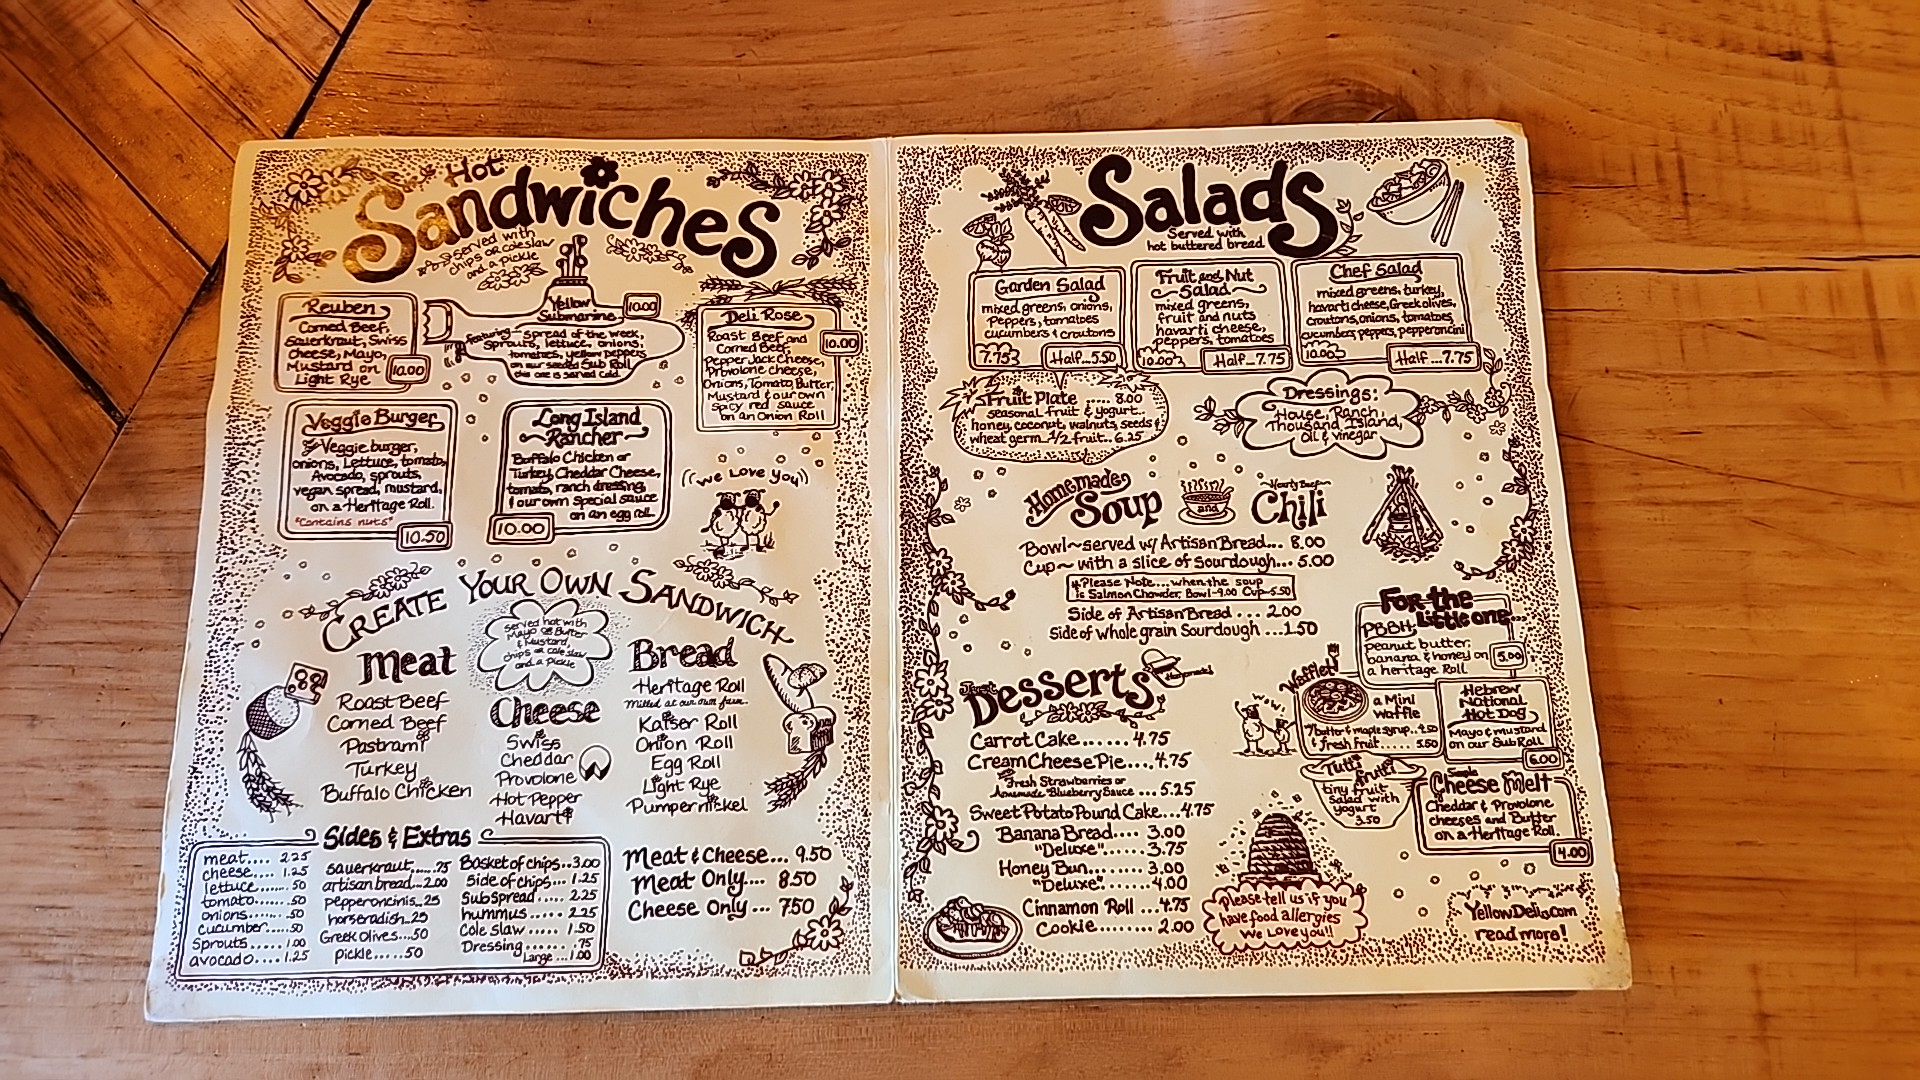 Hot
Sandwiches
served with
chips or coleslaw
and a pickle
Reuben
Corned Beef,
Sauerkraut, Swiss
Cheese, Mayo,
Mustard on
Light Rye
10.00
Yellow
Submarine
10.00
featuring spread of the week,
sprouts, lettuce, onions,
tomatoes, yellow peppers
on our seeded Sub Roll
this one is served cold.
Deli Rose
Roast Beef and
Corned Beef,
Pepper Jack Cheese,
Provolone cheese,
Onions, Tomato, Butter,
Mustard & our own
spicy red sauce
on an Onion Roll
10.00
Veggie Burger
Veggie burger,
onions, Lettuce, tomato,
Avocado, sprouts,
vegan spread, mustard,
on a Heritage Roll.
"Contains nuts"
10.50
Long Island
Rancher
Buffalo Chicken or
Turkey, Cheddar Cheese,
tomato, ranch dressing,
& our own special sauce
on an egg roll
10.00
We Love You
Create Your Own Sandwich
served hot with
Mayo or Butter
& Mustard,
chips or cole slaw
and a pickle
Meat
Roast Beef
Corned Beef
Pastrami
Turkey
Buffalo Chicken
Cheese
Swiss
Cheddar
Provolone
Hot Pepper
Havarti
Bread
Heritage Roll
Milled at our own farm
Kaiser Roll
Onion Roll
Egg Roll
Light Rye
Pumpernickel
Sides & Extras
meat.... 2.25
cheese.... 1.25
lettuce...... .50
tomato..... .50
onions...... .50
cucumber..... .50
Sprouts...... 1.00
avocado.... 1.25
sauerkraut...... .75
artisan bread... 2.00
pepperoncinis .25
horseradish .25
Greek Olives... .50
pickle..... .50
Basket of chips.. 3.00
side of chips... 1.25
Sub Spread..... 2.25
hummus..... 2.25
Cole slaw..... 1.50
Dressing....... .75
Large... 1.00
Meat & Cheese... 9.50
Meat Only.... 8.50
Cheese Only... 7.50
Salads
Served with
hot buttered bread
Garden Salad
mixed greens, onions,
Peppers, tomatoes
cucumbers & croutons
7.75
Half...5.50
Fruit and Nut
Salad
mixed greens,
fruit and nuts
havarti cheese,
peppers, tomatoes
10.00
Half...7.75
Chef Salad
mixed greens, turkey,
havarti cheese, Greek olives,
croutons, onions, tomatoes,
cucumbers, peppers, pepperoncini
10.00
Half...7.75
Fruit Plate ..... 8.00
seasonal fruit & yogurt..
honey, coconut, walnuts, seeds &
wheat germ 1/2 fruit.. 6.25
Dressings:
House, Ranch,
Thousand Island,
Oil & vinegar
Homemade
Soup and
Hearty Beef
Chili
Bowl~served w/ Artisan Bread... 8.00
Cup~ with a slice of Sourdough... 5.00
*Please Note.... when the soup
is Salmon Chowder, Bowl-9.00 Cup-5.50
Side of Artisan Bread . . . 2.00
Side of whole grain Sourdough ...1.50
Desserts
Homemade!
Carrot Cake...... 4.75
Cream Cheese Pie.... 4.75
Fresh Strawberries or
Homemade Blueberry Sauce ... 5.25
Sweet Potato Pound Cake... 4.75
Banana Bread.... 3.00
"Deluxe"...... 3.75
Honey Bun........ 3.00
"Deluxe"....... 4.00
Cinnamon Roll ...4.75
Cookie ......... 2.00
For the
Little one...
PBBH
peanut butter,
banana & honey on
a heritage Roll
5.00
Wow!
Wafflet
a Mini
Waffle
w/ butter & maple syrup.. 4.50
& fresh fruit..... 5.50
Hebrew
National
Hot Dog
Mayo & mustard
on our Sub Roll.
6.00
Tuti
fruiti
tiny fruit
salad with
yogurt
3.50
Simple
Cheese Melt
Cheddar & Provolone
cheeses and Butter
on a Heritage Roll.
4.00
Please tell us if you
have food allergies
We Love you!!
YellowDeli.com
read more!